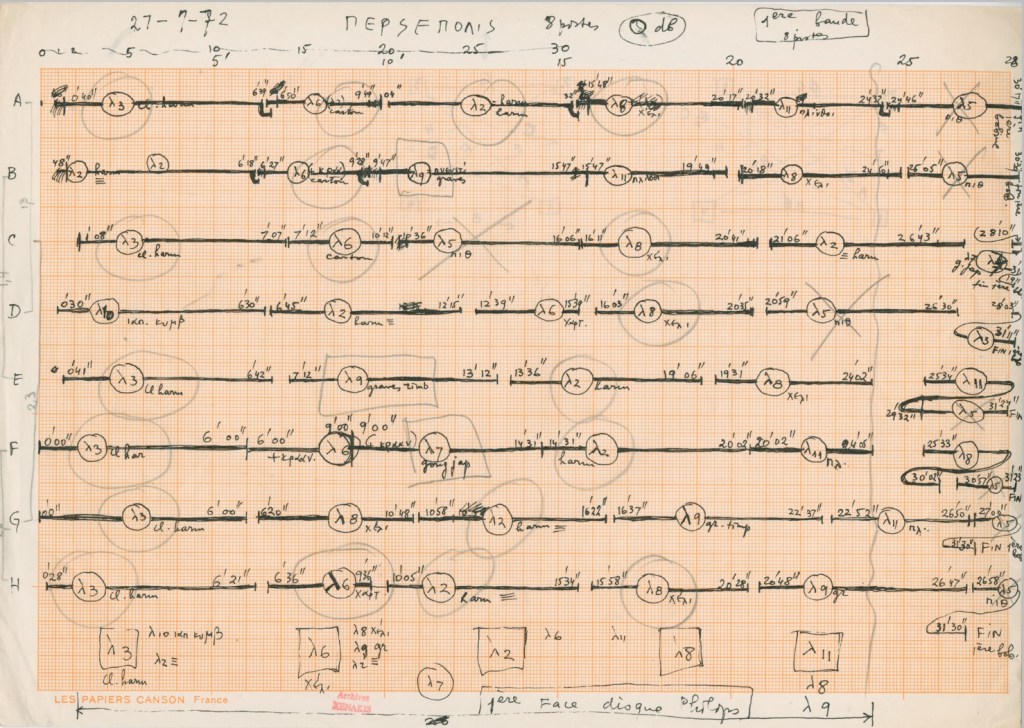 27-7-72 ΠΕΡΣΕΠΟΛΙS 8 pistes Q db 1ère bande 8 pistes
0 1 2 5 10 15 20 25 30
5' 10' 15 20 25 28
A 0'40" λ3 cl. harm 6'50" λ6 carton 9'49" λ2 harm 15'48" λ8 χελι 20'17" 20'32" λ11 πλίνθοι 24'32" 24'46" λ5 πιθ
B 48" λ2 harm ≡ λ2 6'18" 6'27" λ6 carton 9'28" 9'47" λ9 graves 15'47" 15'47" λ11 19'49" 20'18" λ8 χελι 24'50" 25'05" λ5 πιθ
C 1'08" λ3 cl. harm 7'07" 7'12" λ6 carton 10'12" 10'36" λ5 πιθ 16'06" 16'11" λ8 χελι 20'41" 21'06" λ2 ≡ harm 26'43" 28'10"
D 0'30" λ10 ιαπ. κυμβ 6'30" 6'45" λ2 harm ≡ 12'15" 12'39" λ6 χαρτ. 15'39" 16'03" λ8 χελι 20'35" 20'59" λ5 πιθ 26'30" λ3 31'11" FIN
E 0'41" λ3 cl harm 6'42" 7'12" λ9 graves timb 13'12" 13'36 λ2 harm 19'06" 19'31" λ8 χελι 24'02" 25'34" λ11
29'32" λ5 31'27" FIN
F 0'00" λ3 cl har 6'00" 6'00" + κραυν. 9'00" λ6 9'00" λ7 gong jap 14'31" 14'31" harm λ2 20'02 20'02" λ11 πλ. 24'05" 25'33" λ8
30'02" 30'57" λ5 FIN
G 00" λ3 cl. harm 6'00" 6'20" λ8 χελι 10'48" 10'58" λ2 harm ≡ 16'22" 16'37" λ9 gr. timp 22'37" 22'52" λ11 πλ. 26'50" 27'03" λ5
31'30" FIN
H 0'28" λ3 cl. harm 6'21" 6'36" λ6 χαρτ 9'36" 10'05" λ2 harm ≡ 15'34" 15'58" λ8 χελι 20'28" 20'48" λ9 gr 26'47" 26'58" λ5 πιθ
31'30" FIN 1ère bob.
λ3 λ10 ιαπ κυμβ λ2 ≡ cl. harm
λ6 λ8 χελι λ9 gr λ2 ≡ χελι
λ2 λ6 λ11 λ8 λ11
λ7 λ8
LES PAPIERS CANSON France
Archives XENAKIS
1ère Face disque Philips λ9